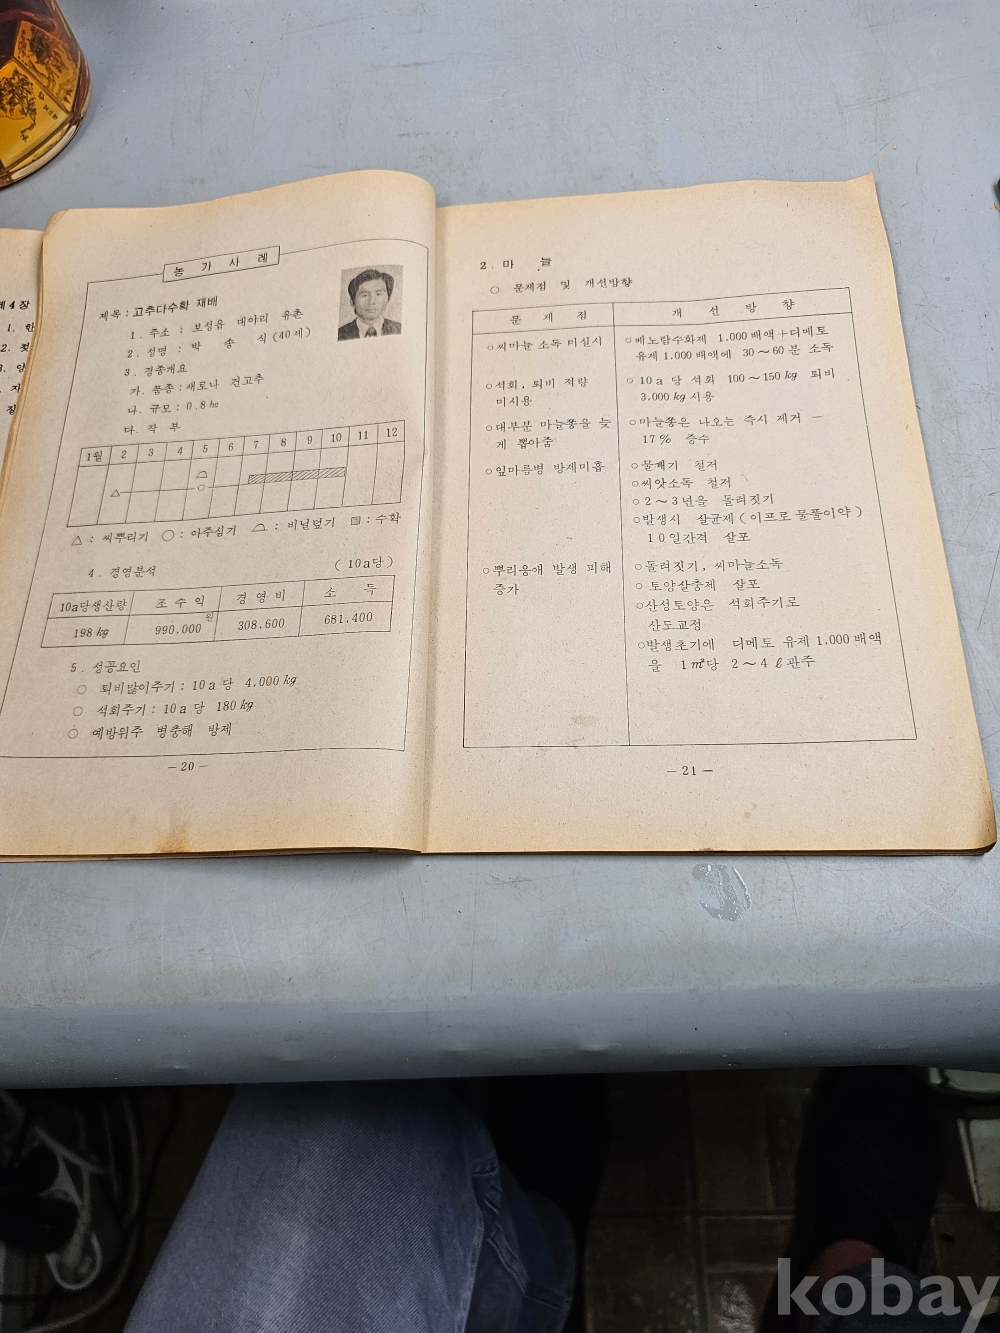 제4장
1. 한
2. 젖
3. 양
농 가 사 례
제목 : 고추다수확 재배
1. 주소 : 보성읍 대야리 유촌
2. 성명 : 박 종 식 (40세)
3. 경종개요
가. 품종 : 새로나 건고추
나. 규모 : 0.8ha
다. 작 부
1월 2 3 4 5 6 7 8 9 10 11 12
△ : 씨뿌리기 ○ : 아주심기 : 비닐덮기 : 수확
4. 경영분석 (10a당)
10a당생산량 조 수 익 경 영 비 소 득
198 kg 990,000원 308,600 681,400
5. 성공요인
○ 퇴비많이주기 : 10a 당 4,000 kg
○ 석회주기 : 10a 당 180 kg
○ 예방위주 병충해 방제
— 20 —
2. 마 늘
○ 문제점 및 개선방향
문 제 점 개 선 방 향
○씨마늘 소독 미실시
○베노람수화제 1,000배액+디메토
유제 1,000배액에 30~60분 소독
○석회, 퇴비 적량
미시용
○10a 당 석회 100~150 kg 퇴비
3,000 kg 시용
○대부분 마늘쫑을 늦
게 뽑아줌
○마늘쫑은 나오는 즉시 제거 —
17% 증수
○잎마름병 방제미흡
○물빼기 철저
○씨앗소독 철저
○2~3년을 돌려짓기
○발생시 살균제 (이프로 물풀이약)
10일간격 살포
○뿌리응애 발생 피해
증가
○돌려짓기, 씨마늘소독
○토양살충제 살포
○산성토양은 석회주기로
산도교정
○발생초기에 디메토 유제 1,000배액
을 1㎡당 2~4ℓ관주
— 21 —
kobay